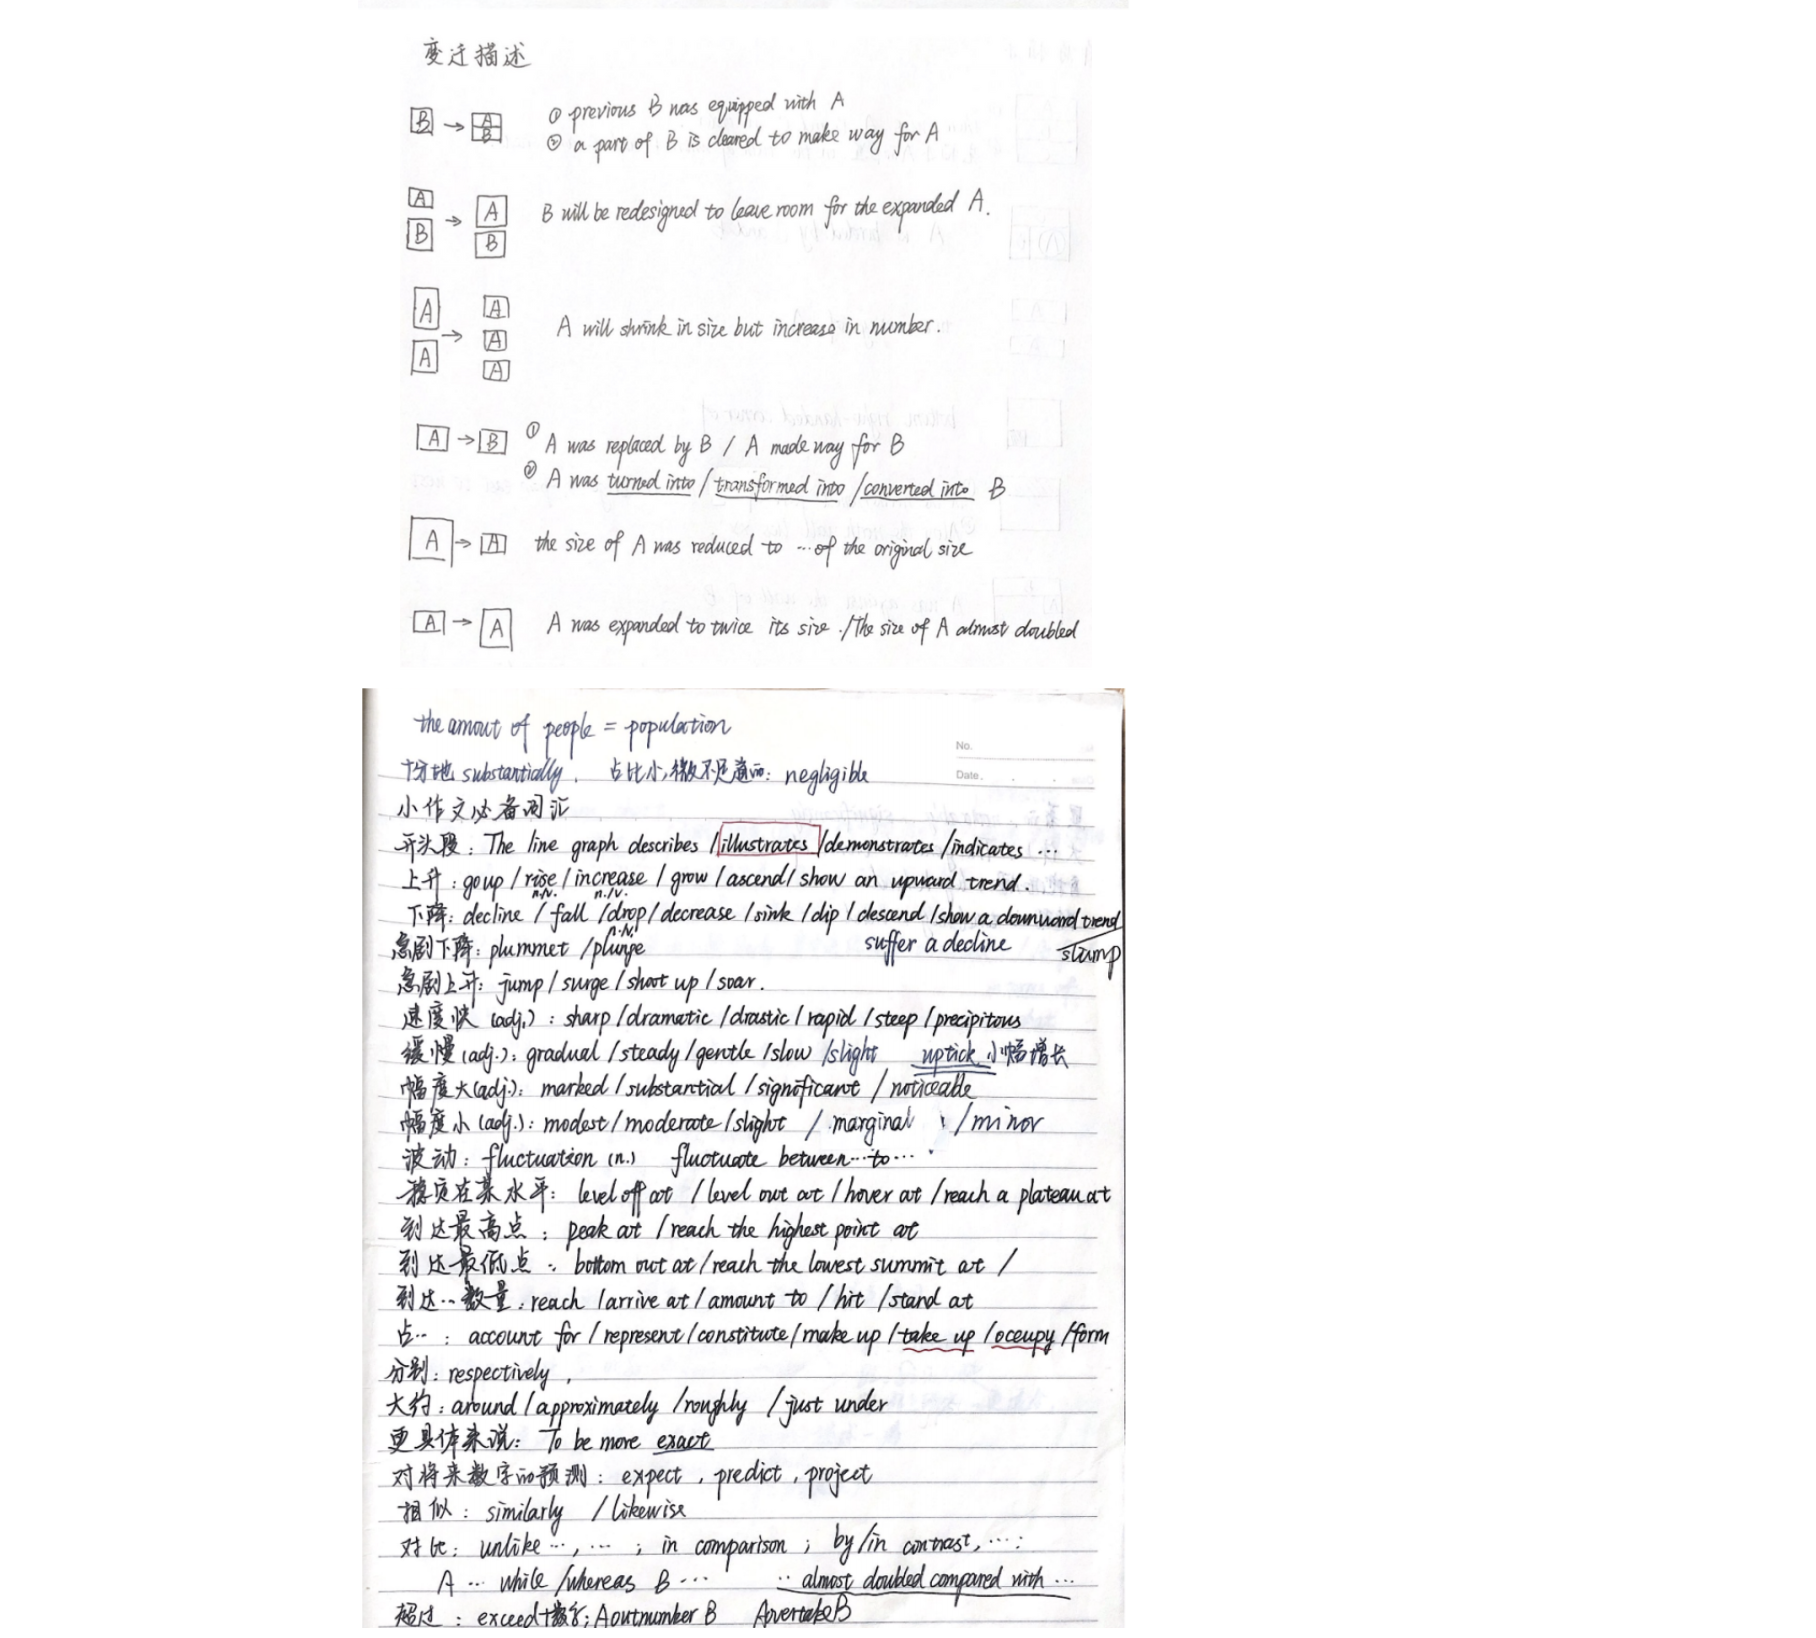 变迁描述
B → A B ① previous B was equipped with A
② a part of B is cleared to make way for A
A B → A B B will be redesigned to leave room for the expanded A.
A A → A A A A will shrink in size but increase in number.
A → B ① A was replaced by B / A made way for B
② A was turned into / transformed into / converted into B
A → A the size of A was reduced to ... of the original size
A → A A was expanded to twice its size. / The size of A almost doubled
the amout of people = population
No.
十分地 substantially. 占比小,微不足道的: negligible
Date.
小作文必备词汇
开头段: The line graph describes / illustrates / demonstrates / indicates ...
上升: go up / rise / increase / grow / ascend / show an upward trend.
n./v. n./v.
下降: decline / fall / drop / decrease / sink / dip / descend / show a downward trend
n./v.
急剧下降: plummet / plunge suffer a decline slump
急剧上升: jump / surge / shoot up / soar.
速度快 (adj.): sharp / dramatic / drastic / rapid / steep / precipitous
缓慢 (adj.): gradual / steady / gentle / slow / slight uptick 小幅增长
幅度大(adj): marked / substantial / significant / noticeable
幅度小 (adj.): modest / moderate / slight / marginal / minor
波动: fluctuation (n.) fluctuate between...to...
稳定在某水平: level off at / level out at / hover at / reach a plateau at
到达最高点: peak at / reach the highest point at
到达最低点: bottom out at / reach the lowest summit at /
到达...数量: reach / arrive at / amount to / hit / stand at
占...: account for / represent / constitute / make up / take up / occupy / form
分别: respectively,
大约: around / approximately / roughly / just under
更具体来说: To be more exact
对将来数字的预测: expect, predict, project
相似: similarly / likewise
对比: unlike ..., ... ; in comparison ; by/in contrast, ...;
A ... while / whereas B ... .. almost doubled compared with ...
超过: exceed+数字; A outnumber B A overtake B